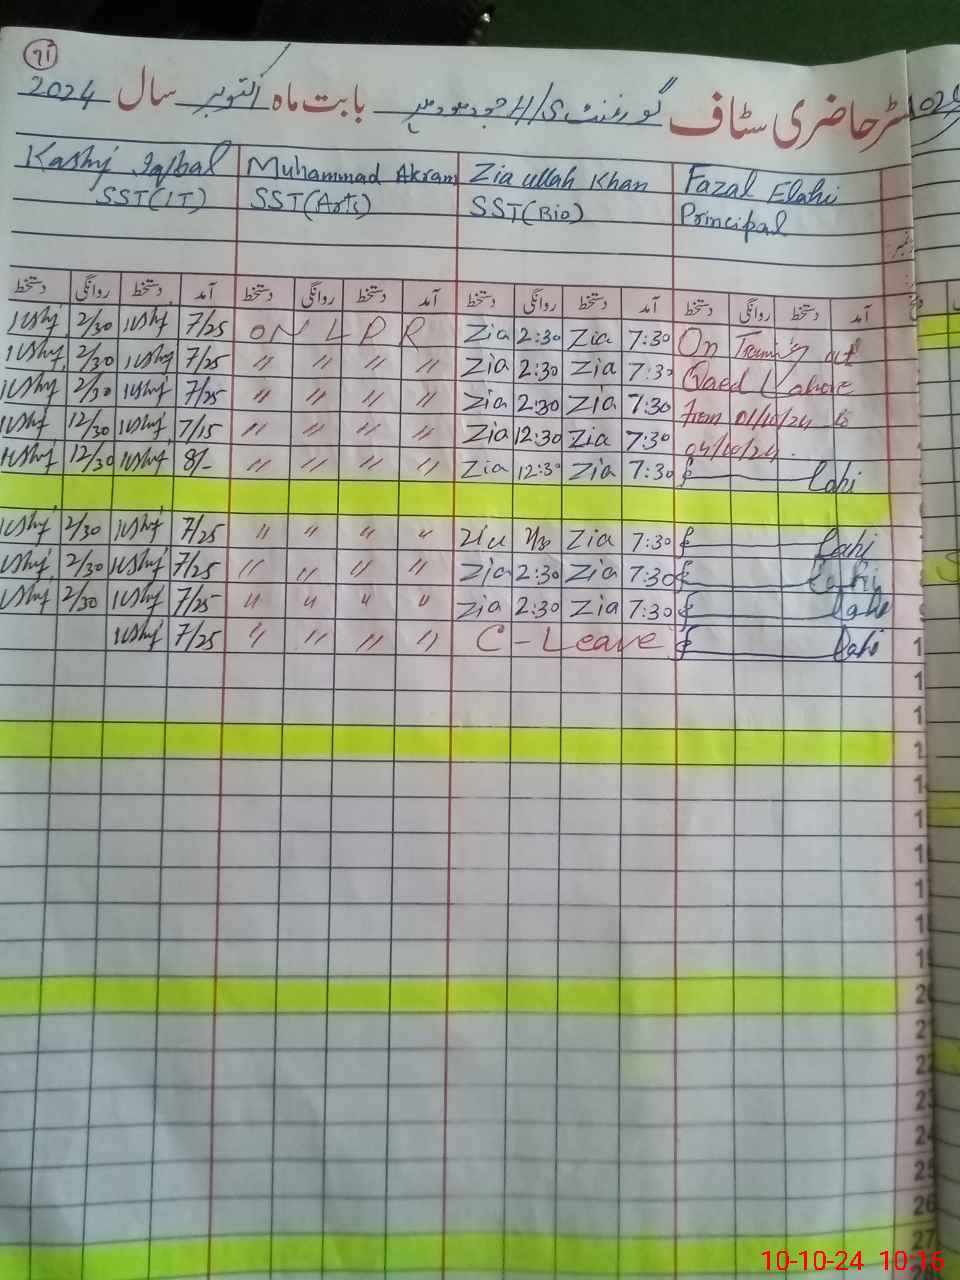 71
رجسٹر حاضری سٹاف گورنمنٹ بابت ماہ اکتوبر سال 2024
Kashif Iqbal Muhammad Akram Zia ullah Khan Fazal Elahi
SST(IT) SST(Arts) SST(Bio) Principal
دستخط روانگی دستخط آمد دستخط روانگی دستخط آمد دستخط روانگی دستخط آمد دستخط روانگی دستخط آمد
2/30 7/25 ON L P R Zia 2:30 Zia 7:30 On Training at
2/30 7/25 " " " " Zia 2:30 Zia 7:30 Qaed Lahore
2/30 7/25 " " " " Zia 2:30 Zia 7:30 from 01/10/24 to
12/30 7/15 " " " " Zia 12:30 Zia 7:30 04/10/24.
12/30 8/- " " " " Zia 12:30 Zia 7:30 Elahi
2/30 7/25 " " " " Zia 2/30 Zia 7:30 Elahi
2/30 7/25 " " " " Zia 2:30 Zia 7:30 Elahi
2/30 7/25 " " " " Zia 2:30 Zia 7:30 Elahi
7/25 " " " " C-Leave Elahi
20
22
23
24
25
26
27
10-10-24 10:16